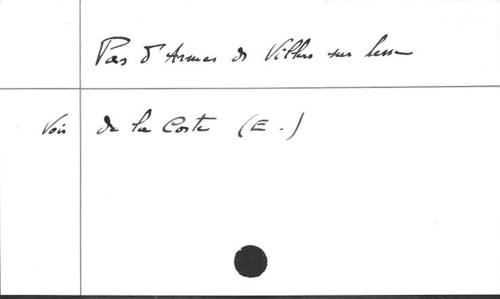 Pas d'Armes de Villers sur Lesse
Voir de la Coste (E.)